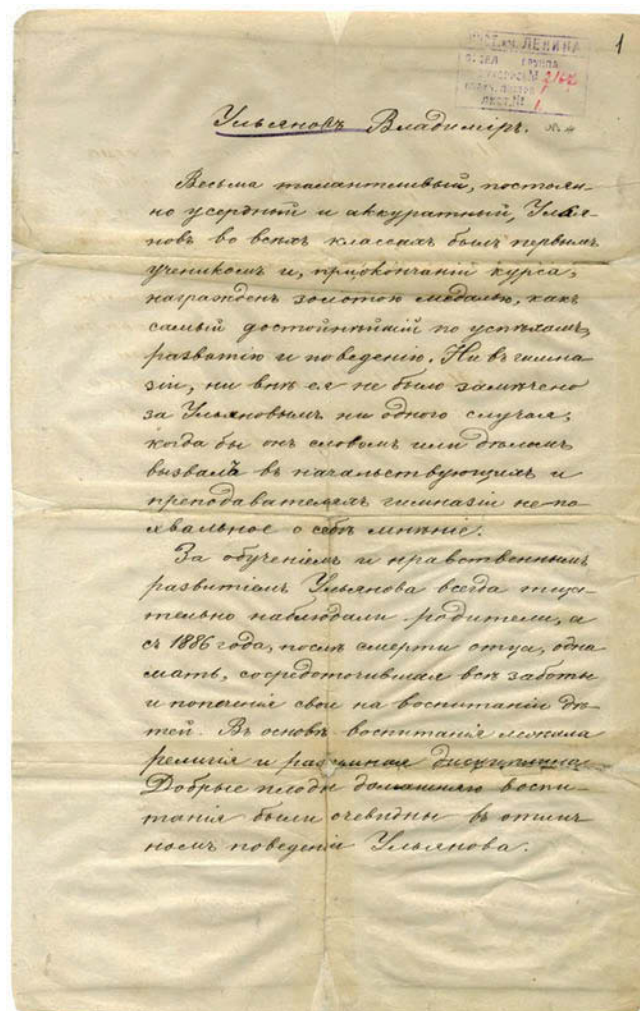 1
ИНСТ. им. ЛЕНИНА
Ульяновъ Владиміръ.
Весьма талантливый, постоян-
но усердный и аккуратный, Улья-
новъ во всѣхъ классахъ былъ первымъ
ученикомъ и, при окончаніи курса,
награжденъ золотою медалью, какъ
самый достойнѣйшій по успѣхамъ,
развитію и поведенію. Ни въ гимна-
зіи, ни внѣ ея не было замѣчено
за Ульяновымъ ни одного случая,
когда бы онъ словомъ или дѣломъ
вызвалъ въ начальствующихъ и
преподавателяхъ гимназіи не по-
хвальное о себѣ мнѣніе.
За обученіемъ и нравственнымъ
развитіемъ Ульянова всегда тща-
тельно наблюдали родители, а
съ 1886 года, послѣ смерти отца, одна
мать, сосредоточившая всѣ заботы
и попеченія свои на воспитаніи дѣ-
тей. Въ основѣ воспитанія лежала
религія и разумная дисциплина.
Добрые плоды домашняго воспи-
танія были очевидны въ отлич-
номъ поведеніи Ульянова.